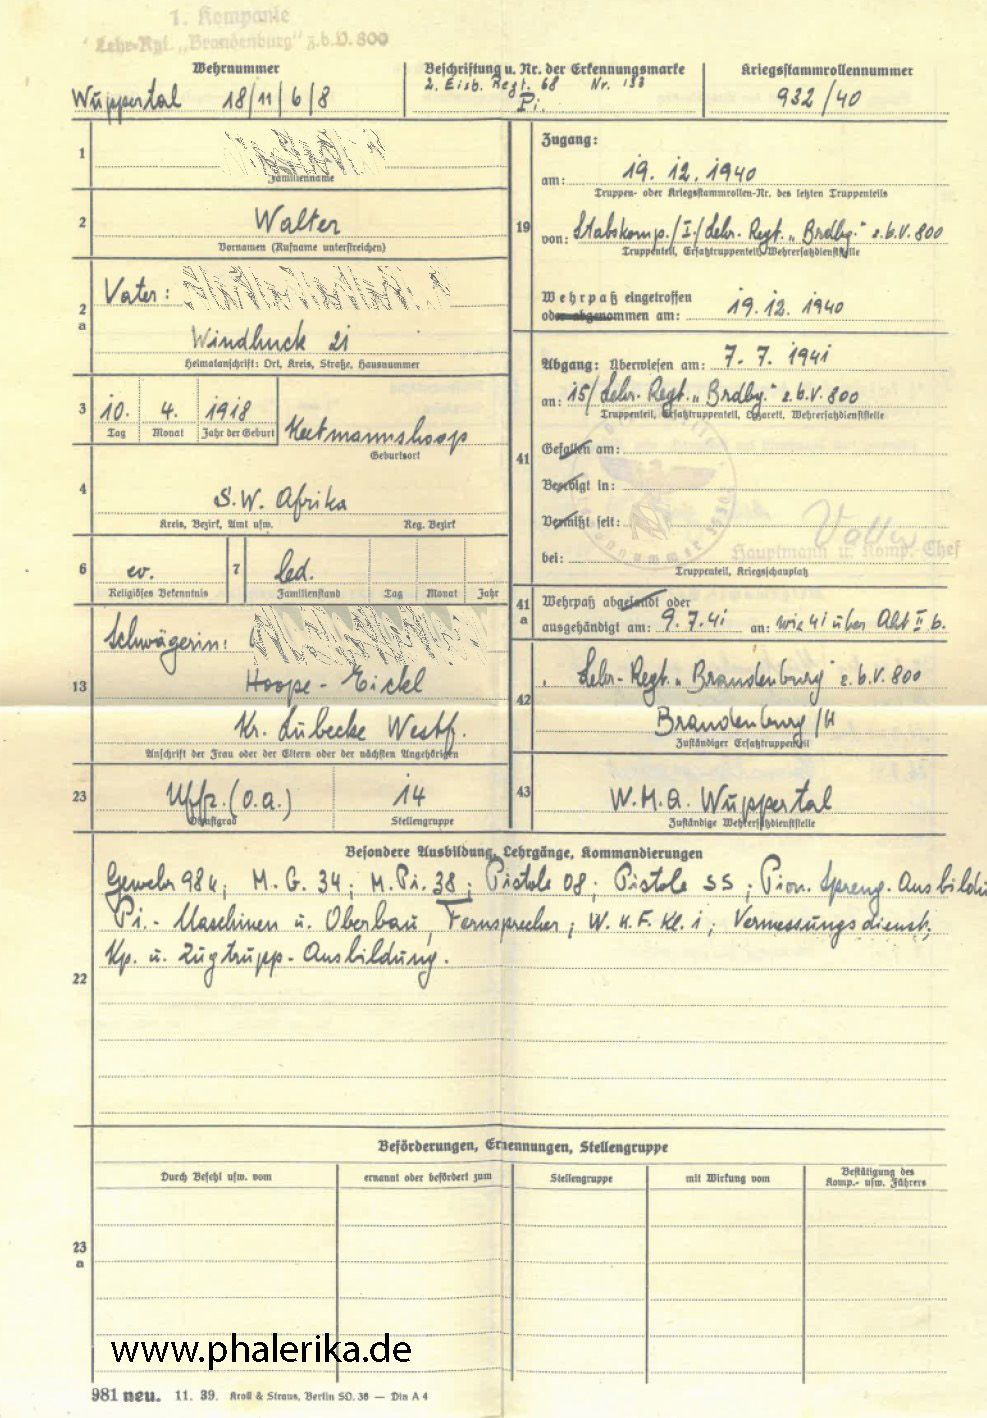 1. Kompanie
Lehr-Rgt. „Brandenburg“ z.b.V. 800
Wehrnummer
Wuppertal 18/11/6/8
Beschriftung u. Nr. der Erkennungsmarke
2. Eisb. Regt. 68 Nr. 133
Pi.
Kriegsstammrollennummer
932/40
1
Familienname
2
Walter
Vornamen (Rufname unterstreichen)
2 a
Vater:
Windhuck 21
Heimatanschrift: Ort, Kreis, Straße, Hausnummer
3
10. 4. 1918
Tag Monat Jahr der Geburt
Keetmannshoop
Geburtsort
4
S.W. Afrika
Kreis, Bezirk, Amt usw. Reg. Bezirk
6
ev.
Religiöses Bekenntnis
7
led.
Familienstand Tag Monat Jahr
13
Schwägerin:
Kr. Lübecke Westf.
Anschrift der Frau oder der Eltern oder der nächsten Angehörigen
23
Uffz. (O.A.) 14
Dienstgrad Stellengruppe
19
Zugang:
am: 19. 12. 1940
Truppen- oder Kriegsstammrollen-Nr. des letzten Truppenteils
von: Stabskomp./I./Lehr-Regt. „Brdbg.“ z.b.V. 800
Truppenteil, Ersatztruppenteil, Wehrersatzdienststelle
Wehrpaß eingetroffen
oder abgenommen am: 19. 12. 1940
41
Abgang: Überwiesen am: 7. 7. 1941
an: 15/Lehr-Regt. „Brdbg.“ z.b.V. 800
Truppenteil, Ersatztruppenteil, Lazarett, Wehrersatzdienststelle
Gefallen am:
Beerdigt in:
Vermißt seit:
Hauptmann u. Komp.-Chef
bei:
Truppenteil, Kriegsschauplatz
41 a
Wehrpaß abgesandt oder
ausgehändigt am: 9.7.41 an: wie 41 über Abt II b.
42
Lehr-Regt. „Brandenburg“ z.b.V. 800
Brandenburg/H
Zuständiger Ersatztruppenteil
43
W.M.A. Wuppertal
Zuständige Wehrersatzdienststelle
22
Besondere Ausbildung, Lehrgänge, Kommandierungen
Gewehr 98k; M.G. 34; M.Pi. 38; Pistole 08; Pistole SS; Pion. Spreng-Ausbildu
Pi.- Maschinen u. Oberbau, Fernsprecher; W.K.F. Kl. 1; Vermessungsdienst;
Kp. u. Zugtrupp-Ausbildung.
23 a
Beförderungen, Ernennungen, Stellengruppe
Durch Befehl usw. vom
ernannt oder befördert zum
Stellengruppe
mit Wirkung vom
Bestätigung des
Komp.- usw. Führers
www.phalerika.de
981 neu. 11. 39. Kroll & Straus, Berlin SO. 36 — Din A 4